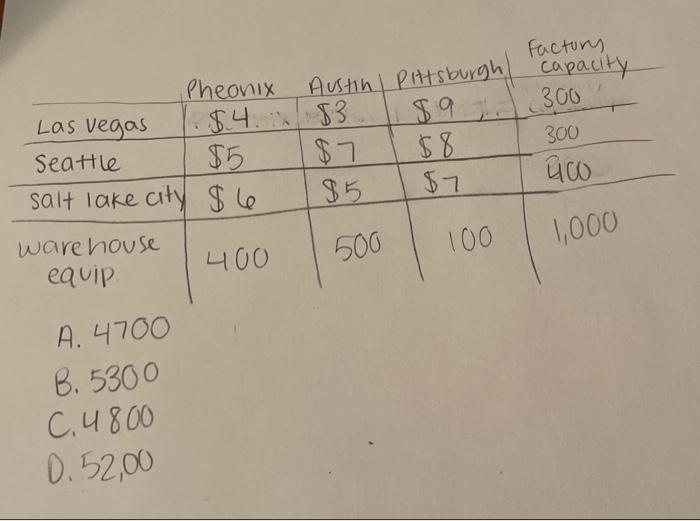 Pheonix Austin Pittsburgh Factory capacity
Las vegas $4 $3 $9 300
Seattle $5 $7 $8 300
salt lake city $6 $5 $7 400
warehouse equip. 400 500 100 1,000
A. 4700
B. 5300
C. 4800
D. 52,00